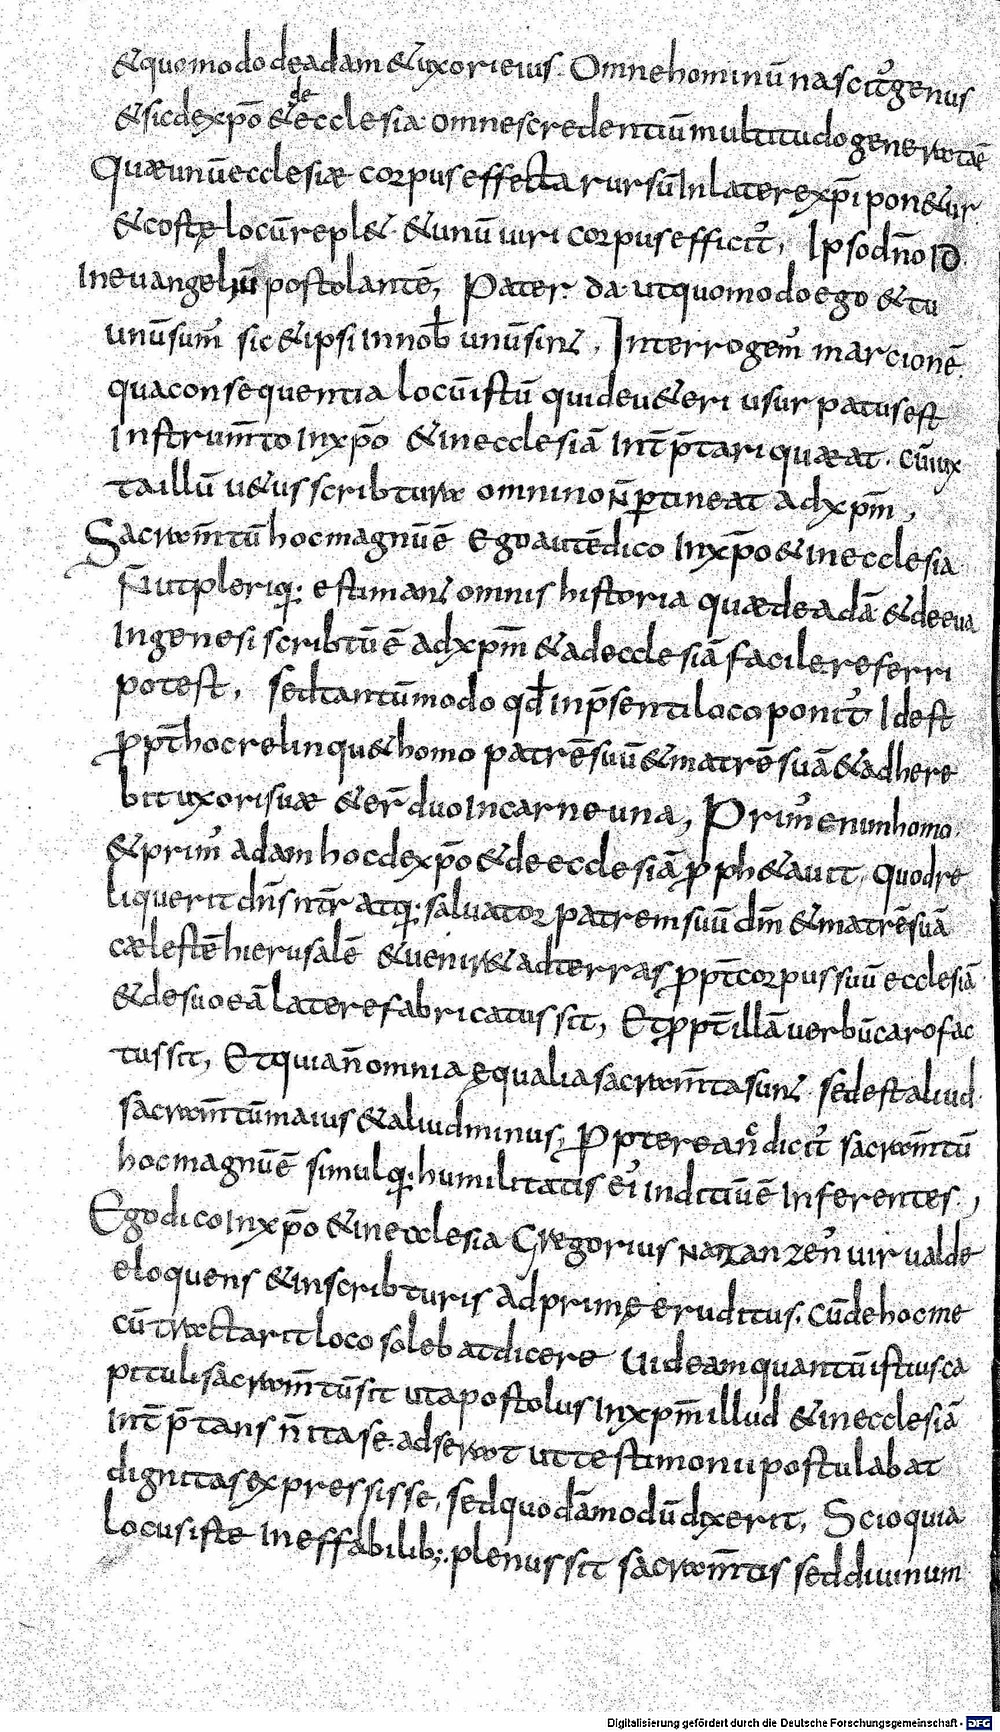 &quomodo de adam & uxori eius. Omne hominū nascit᷎ genus
& sic de xp̄o & de ecclesia omnes credentiū multitudo generata ē
Quæ unū ecclesiæ corpus effecta rursū In latere xp̄i pon&ur
& costę locū repl& & unū uiri corpus efficit᷎, Ipso dn̄o Id
In euangeliū postolante, Pater da ut quomodo ego & tu
unū sum᷎ sic & ipsi In nob̄ unū sint, Interrogem᷎ marcionē
qua consequentia locū istū qui de u&eri usurpatus est
Instrum̄to In xp̄o & in ecclesiā Int̄p̄tari quæat. cū iux
ta illū u&us scribtura omnino n̄ ꝑtineat ad xp̄m,
Sacram̄tū hoc magnū ē Ego autē dico In xp̄o & in ecclesia
N̄ ut pleriq; estimant omnis historia quæ de adā & de eua
In genesi scribtū ē ad xp̄m & ad ecclesiā facile referri
potest, sed tantū modo qđ in p̄senti loco ponit᷎ Id est
ꝓpt̄ hoc relinqu& homo patrē suū & matrē suā & adhere
bit uxori suæ & er̄ duo In carne una, Prim᷎ enim homo
& prim᷎ adam hoc de xp̄o & de ecclesiā ꝓph&auit. quod re
liquerit dn̄s nt̄r atq; saluator patrem suū dm̄ & matrē suā
cælestē hierusalē & uenirit ad terras ꝓpt̄ corpus suū ecclesiā
& de suo eā latere fabricatus sit, Et ꝓpt̄ illā uerbū caro fac
tus sit, Et quia n̄ omnia ęqualia sacram̄ta sunt sed est aliud
sacram̄tū maius & aliud minus, Ppterea n̄c dicit᷎ sacram̄tū
hoc magnū ē simulq; humilitatis ei᷎ inditiū ē Inferentes,
Ego dico In xp̄o & in ecclesia Gregorius nazanzen᷎ uir ualde
eloquens & in scribturis adprimę eruditus. cū de hoc me
cū tractarit loco solebat dicere Uideam quantū istius ca
pituli sacram̄tū sit ut apostolus In xp̄m illud & in ecclesiā
Int̄p̄tans n̄ ita se adserat ut testimonii postulabat
dignitas expressisse, sed quodāmodū dixerit, Scio quia
locus iste Ineffabilib; plenus sit sacram̄tis sed diuinum
Digitalisierung gefördert durch die Deutsche Forschungsgemeinschaft - DFG